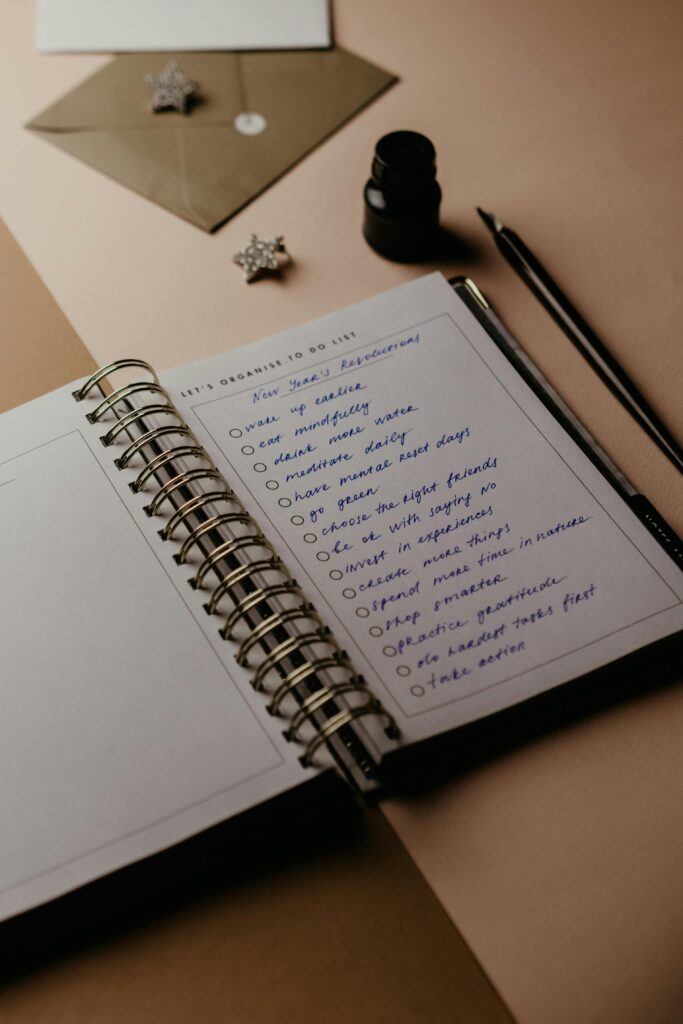 LET'S ORGANISE. TO DO LIST
New Year's Resolutions
wake up earlier
eat mindfully
drink more water
meditate daily
have mental reset days
go green
choose the right friends
be ok with saying NO
invest in experiences
create more things
spend more time in nature
shop smarter
practice gratitude
do hardest tasks first
take action